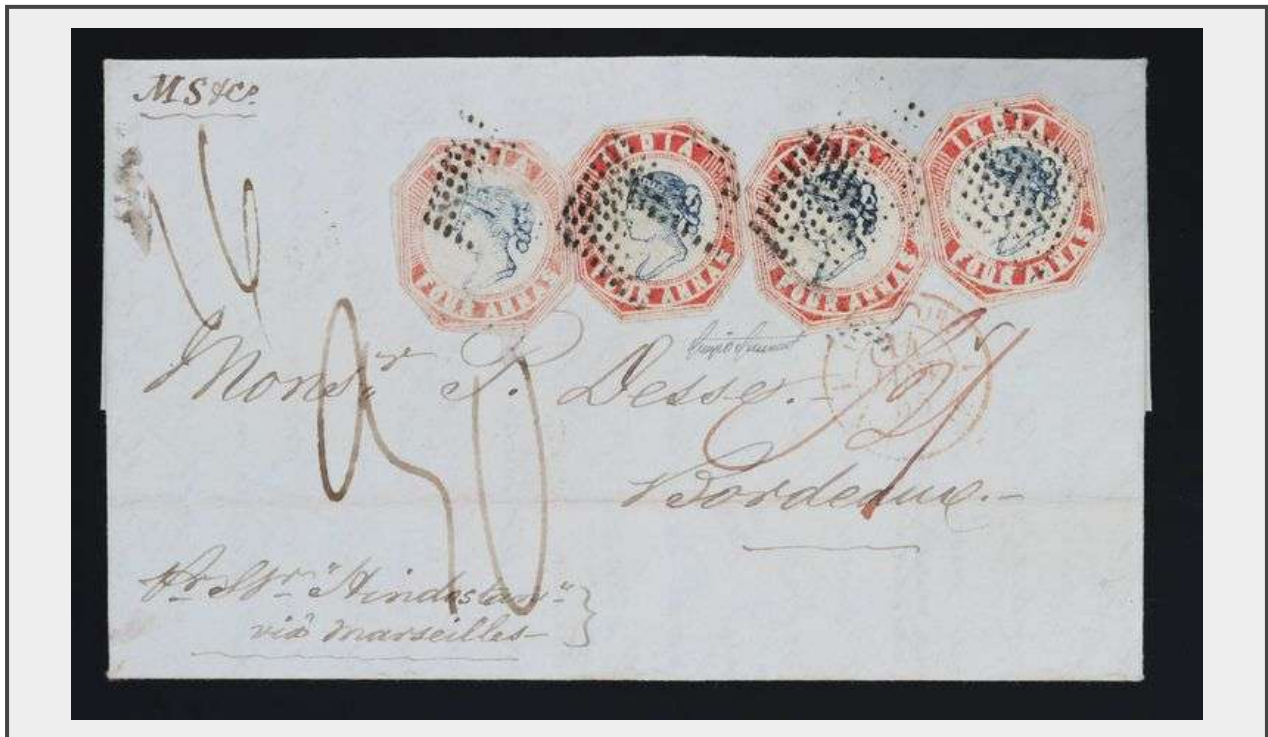 MS&Co
INDIA
FOUR ANNAS
INDIA
FOUR ANNAS
INDIA
FOUR ANNAS
INDIA
FOUR ANNAS
Monsr P. Desse.-
Bordeaux.-
90
pr Str "Hindostan"
viâ Marseilles-